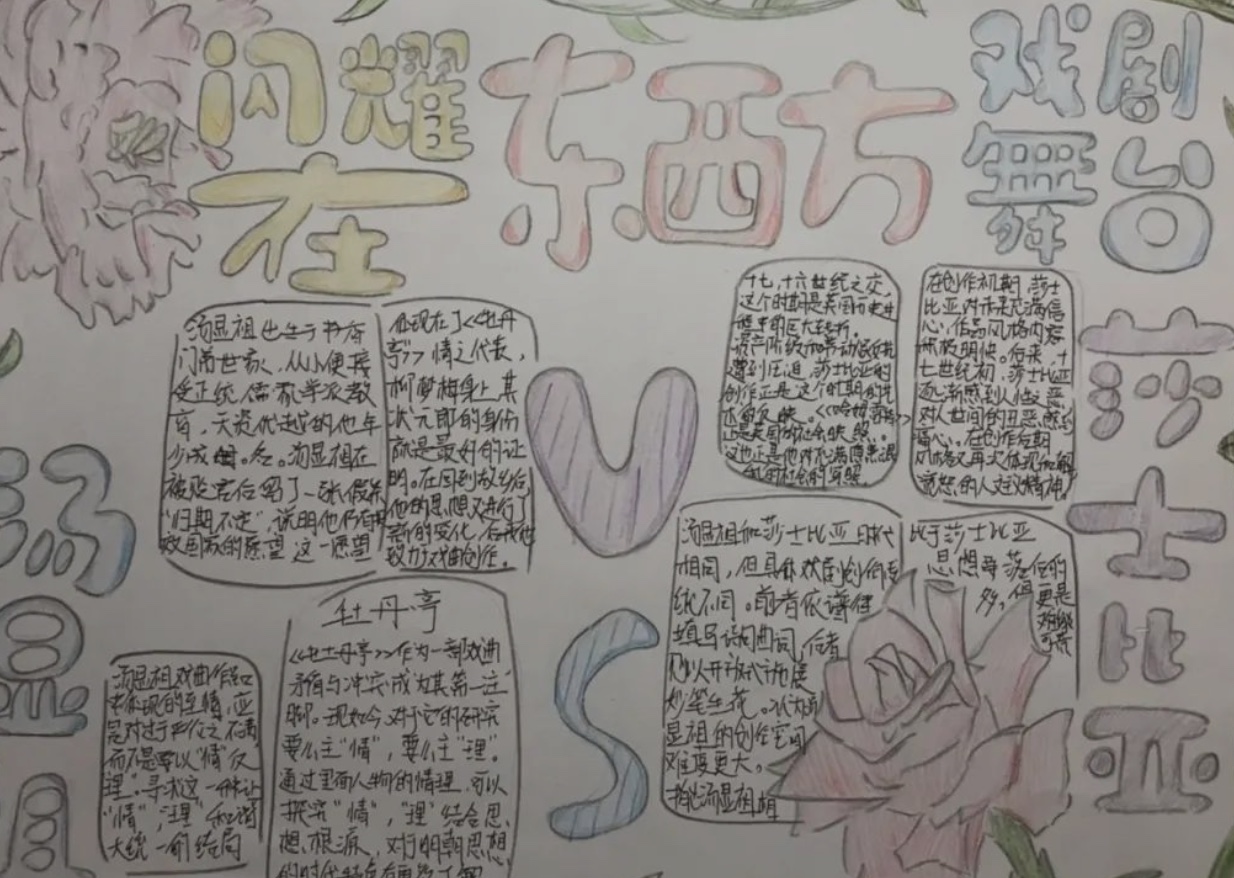 闪耀
在
东西方
戏剧
舞台
汤显
VS
莎士比亚
汤显祖出生于书香
门第世家，从小便接
受正统儒家学派教
育，天资优越的他年
少成名。汤显祖在
被贬官后写了一张假条
“归期不定”，说明他仍有
效国家的愿望 这一愿望
体现在了《牡丹
亭》“情”之代表，
柳梦梅身上，其
状元郎的身份
就是最好的证
明。在回到故乡后，
他的思想又进行了
新的变化，后
致力于戏曲创作。
十七，十六世纪之交，
这个时期是英国历史
中的巨大转折。
资产阶级和劳动
遭到压迫，莎士比亚的
创作正是这个时期的
的反映。《哈姆雷特》
正是英国的社会映照。
又也正是他对
的社会的写照。
在创作初期，莎士
比亚对未来充满信
心，作品风格内容
积极明快。后来，十
七世纪初，莎士比亚
逐渐感到人性之恶
对人世间的丑恶感到
痛心。在创作后期
风格又再次体现
宽恕的人文主义精神。
汤显祖和莎士比亚时代
相同，但具体戏剧创作传
统不同。前者依谱
填写词曲词，后者
以开放式
妙笔生花。
显祖的创作空间
难度更大。
汤显祖
比于莎士比亚
思想
多，但更是
牡丹亭
《牡丹亭》作为一部戏曲
矛盾与冲突成为其第一注
脚。现如今对于它的研究
要么主“情”，要么主“理”。
通过里面人物的情理，可以
探究“情”，“理”结合思
想根源，对于明朝思想
的时代特点有更多了解
汤显祖戏曲作品
表现的至情，
是对过于严位之不满
而不是要以“情”反
理”。寻求这一种让
“情”，“理”和谐
大统一的结局